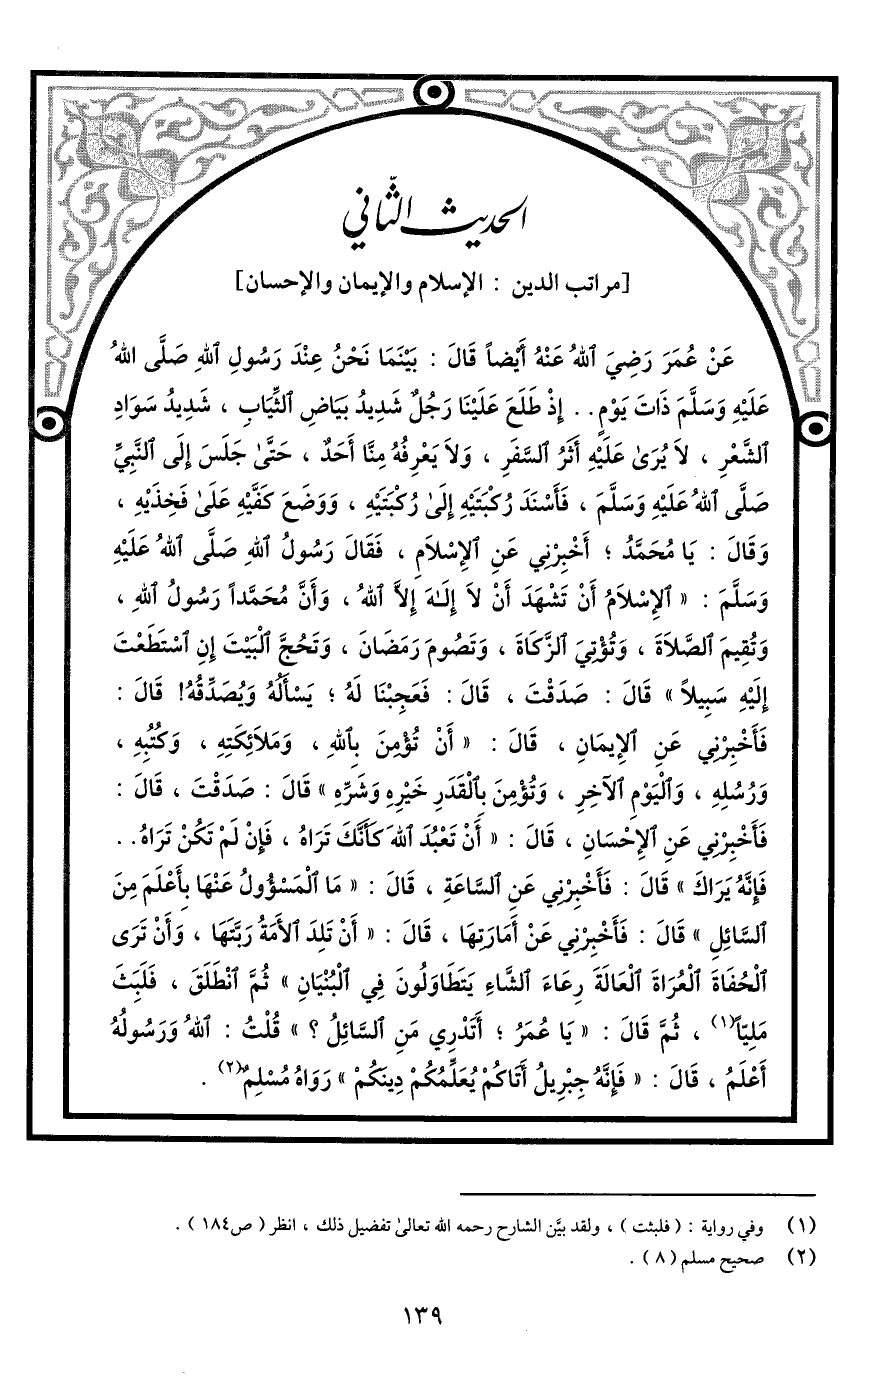 الحديث الثّاني
[مراتب الدين : الإسلام والإيمان والإحسان]
عَنْ عُمَرَ رَضِيَ ٱللهُ عَنْهُ أَيْضاً قَالَ : بَيْنَمَا نَحْنُ عِنْدَ رَسُولِ ٱللهِ صَلَّى اللهُ
عَلَيْهِ وَسَلَّمَ ذَاتَ يَوْمٍ. . إِذْ طَلَعَ عَلَيْنَا رَجُلٌ شَدِيدُ بَيَاضِ ٱلثِّيَابِ ، شَدِيدُ سَوَادِ
ٱلشَّعْرِ ، لاَ يُرَىٰ عَلَيْهِ أَثَرُ ٱلسَّفَرِ ، وَلاَ يَعْرِفُهُ مِنَّا أَحَدٌ ، حَتَّىٰ جَلَسَ إِلَى ٱلنَّبِيِّ
صَلَّى ٱللهُ عَلَيْهِ وَسَلَّمَ ، فَأَسْنَدَ رُكْبَتَيْهِ إِلَىٰ رُكْبَتَيْهِ ، وَوَضَعَ كَفَّيْهِ عَلَىٰ فَخِذَيْهِ ،
وَقَالَ : يَا مُحَمَّدُ ؛ أَخْبِرْنِي عَنِ ٱلإِسْلاَمِ ، فَقَالَ رَسُولُ ٱللهِ صَلَّى ٱللهُ عَلَيْهِ
وَسَلَّمَ : « ٱلإِسْلاَمُ أَنْ تَشْهَدَ أَنْ لاَ إِلَـٰهَ إِلاَّ ٱللهُ ، وَأَنَّ مُحَمَّداً رَسُولُ ٱللهِ ،
وَتُقِيمَ ٱلصَّلاَةَ ، وَتُؤْتِيَ ٱلزَّكَاةَ ، وَتَصُومَ رَمَضَانَ ، وَتَحُجَّ ٱلْبَيْتَ إِنِ ٱسْتَطَعْتَ
إِلَيْهِ سَبِيلاً » قَالَ : صَدَقْتَ ، قَالَ : فَعَجِبْنَا لَهُ ؛ يَسْأَلُهُ وَيُصَدِّقُهُ! قَالَ :
فَأَخْبِرْنِي عَنِ ٱلإِيمَانِ ، قَالَ : « أَنْ تُؤْمِنَ بِٱللهِ ، وَمَلاَئِكَتِهِ ، وَكُتُبِهِ ،
وَرُسُلِهِ ، وَٱلْيَوْمِ ٱلآخِرِ ، وَتُؤْمِنَ بِٱلْقَدَرِ خَيْرِهِ وَشَرِّهِ » قَالَ : صَدَقْتَ ، قَالَ :
فَأَخْبِرْنِي عَنِ ٱلإِحْسَانِ ، قَالَ : « أَنْ تَعْبُدَ ٱللهَ كَأَنَّكَ تَرَاهُ ، فَإِنْ لَمْ تَكُنْ تَرَاهُ. .
فَإِنَّهُ يَرَاكَ » قَالَ : فَأَخْبِرْنِي عَنِ ٱلسَّاعَةِ ، قَالَ : « مَا ٱلْمَسْؤُولُ عَنْهَا بِأَعْلَمَ مِنَ
ٱلسَّائِلِ » قَالَ : فَأَخْبِرْنِي عَنْ أَمَارَتِهَا ، قَالَ : « أَنْ تَلِدَ ٱلأَمَةُ رَبَّتَهَا ، وَأَنْ تَرَى
ٱلْحُفَاةَ ٱلْعُرَاةَ ٱلْعَالَةَ رِعَاءَ ٱلشَّاءِ يَتَطَاوَلُونَ فِي ٱلْبُنْيَانِ » ثُمَّ ٱنْطَلَقَ ، فَلَبِثَ
مَلِيّاً(١) ، ثُمَّ قَالَ : « يَا عُمَرُ ؛ أَتَدْرِي مَنِ ٱلسَّائِلُ ؟ » قُلْتُ : ٱللهُ وَرَسُولُهُ
أَعْلَمُ ، قَالَ : « فَإِنَّهُ جِبْرِيلُ أَتَاكُمْ يُعَلِّمُكُمْ دِينَكُمْ » رَوَاهُ مُسْلِمٌ(٢) .
(١) وفي رواية : ( فلبثت ) ، ولقد بيَّن الشارح رحمه الله تعالىٰ تفضيل ذلك ، انظر ( ص١٨٤ ) .
(٢) صحيح مسلم ( ٨ ) .
١٣٩